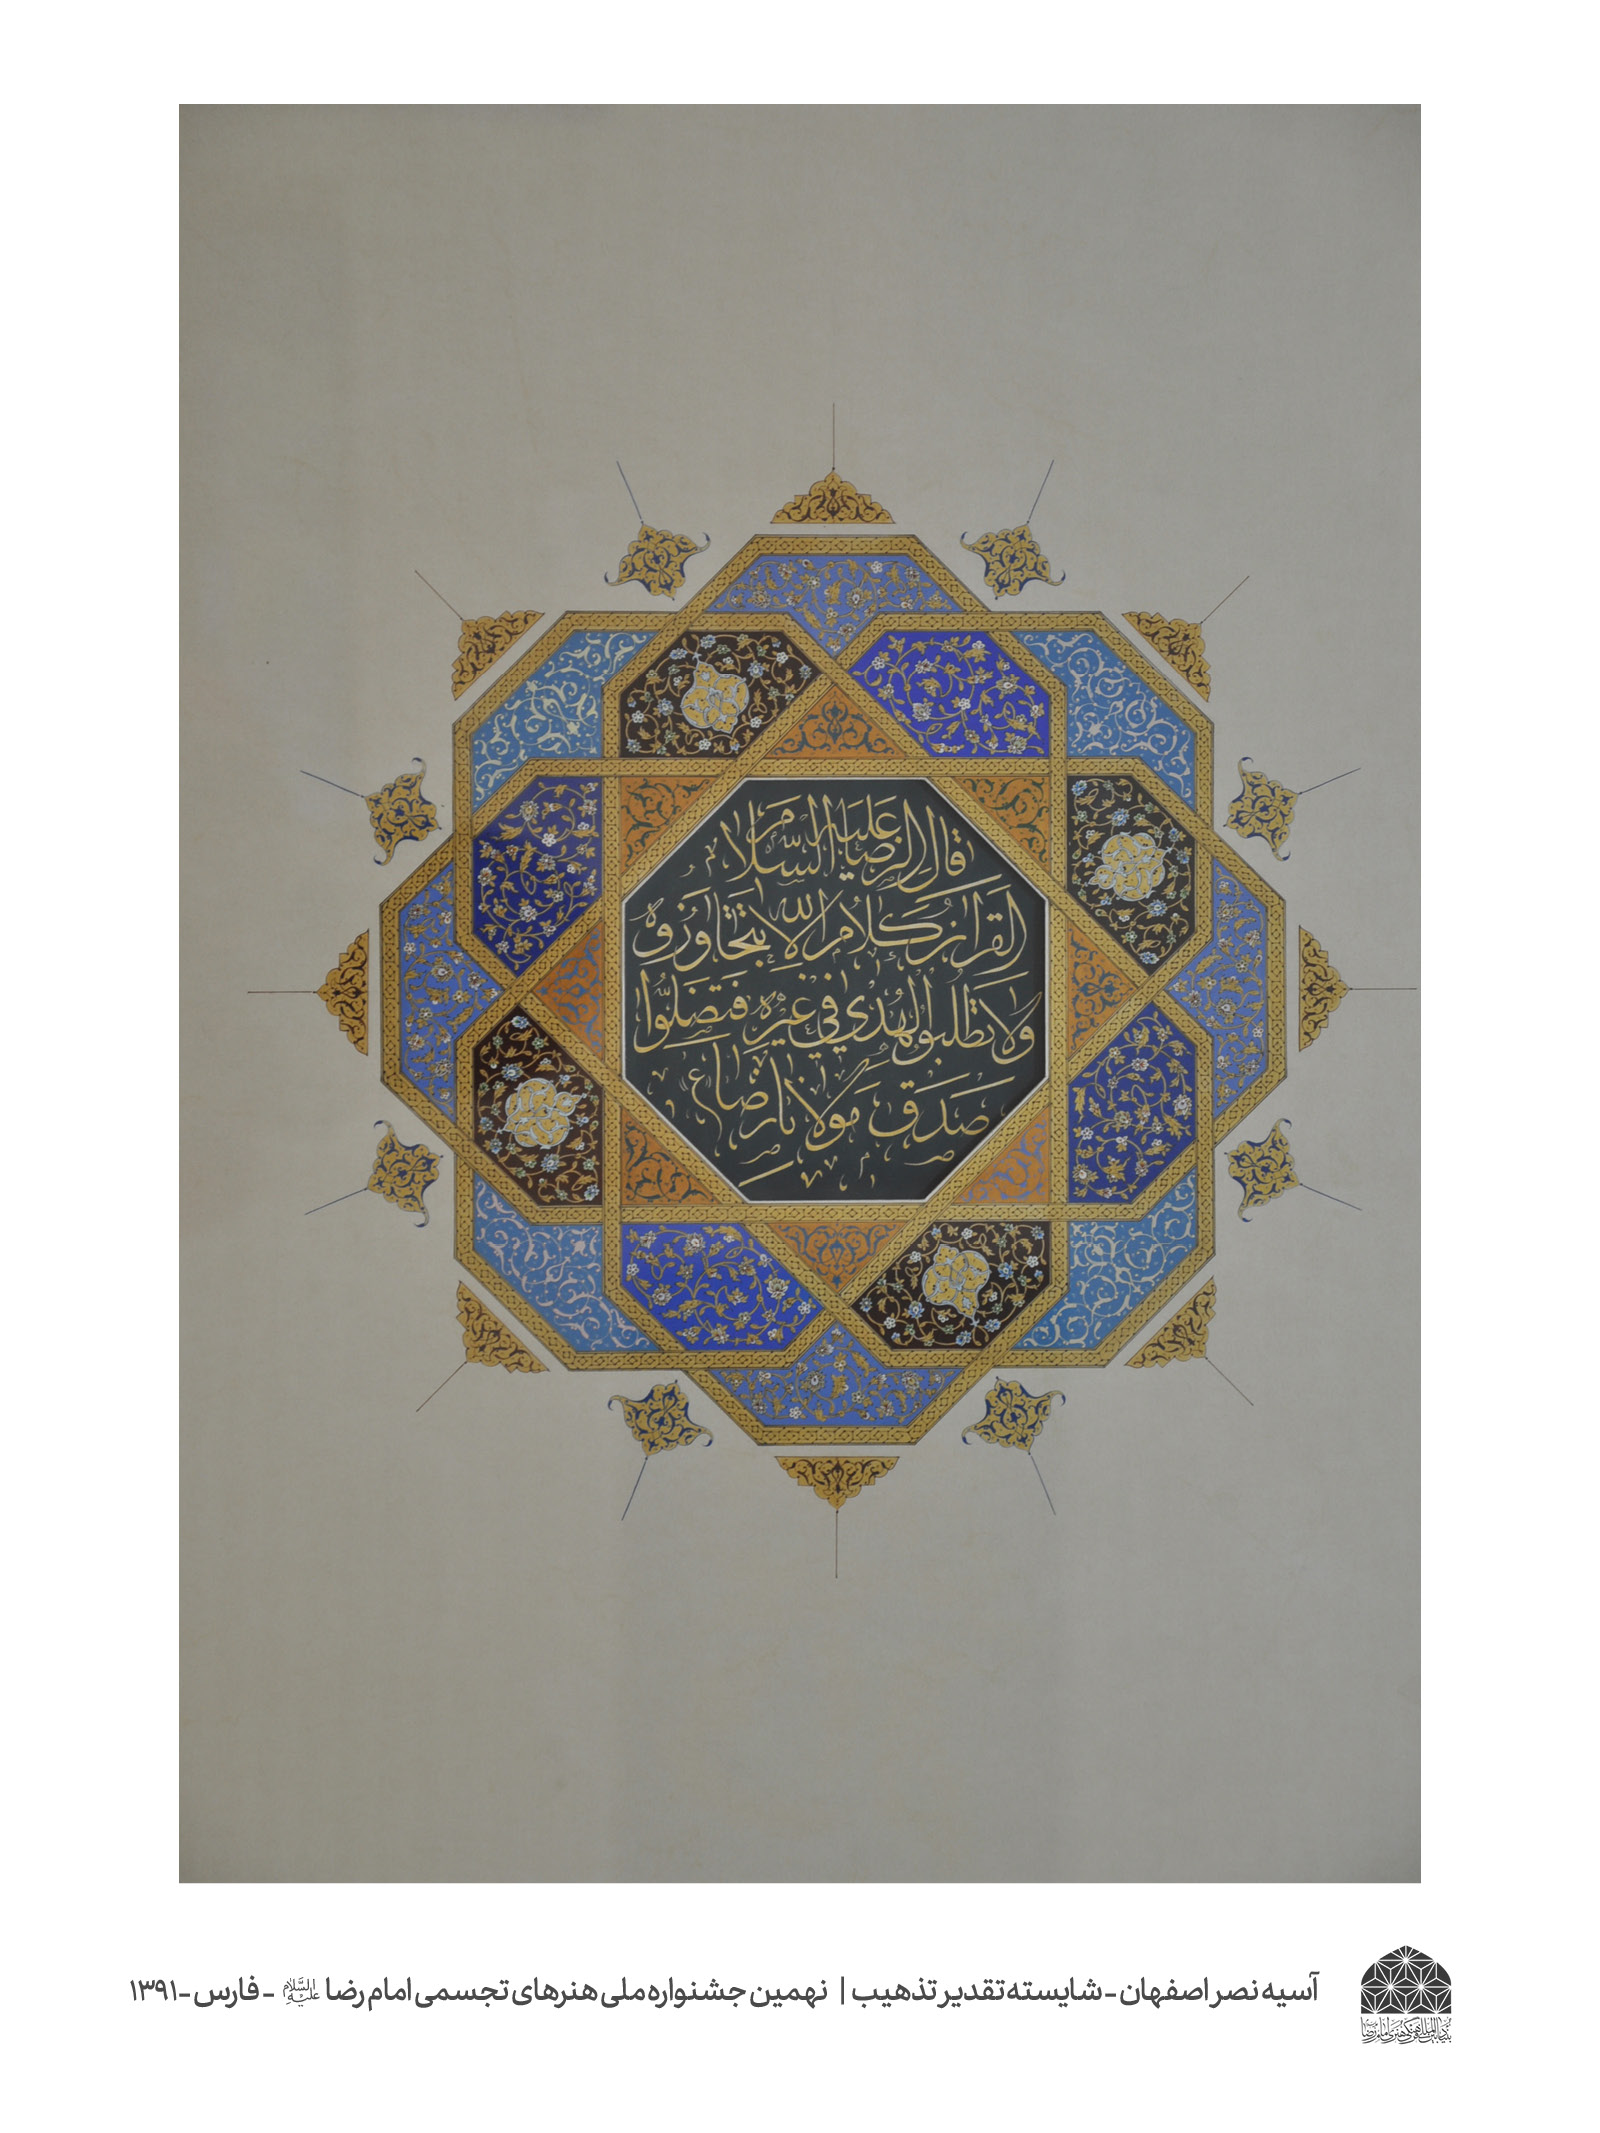 قال الرضا علیه السلام
القرآن کلام الله لا تتجاوزوه
ولا تطلبوا الهدی فی غیره فتضلوا
صدق مولانا رضا (ع)
آسیه نصر اصفهان - شایسته تقدیر تذهیب | نهمین جشنواره ملی هنرهای تجسمی امام رضا علیه السلام - فارس - ۱۳۹۱
بنیاد بین المللی فرهنگی هنری امام رضا